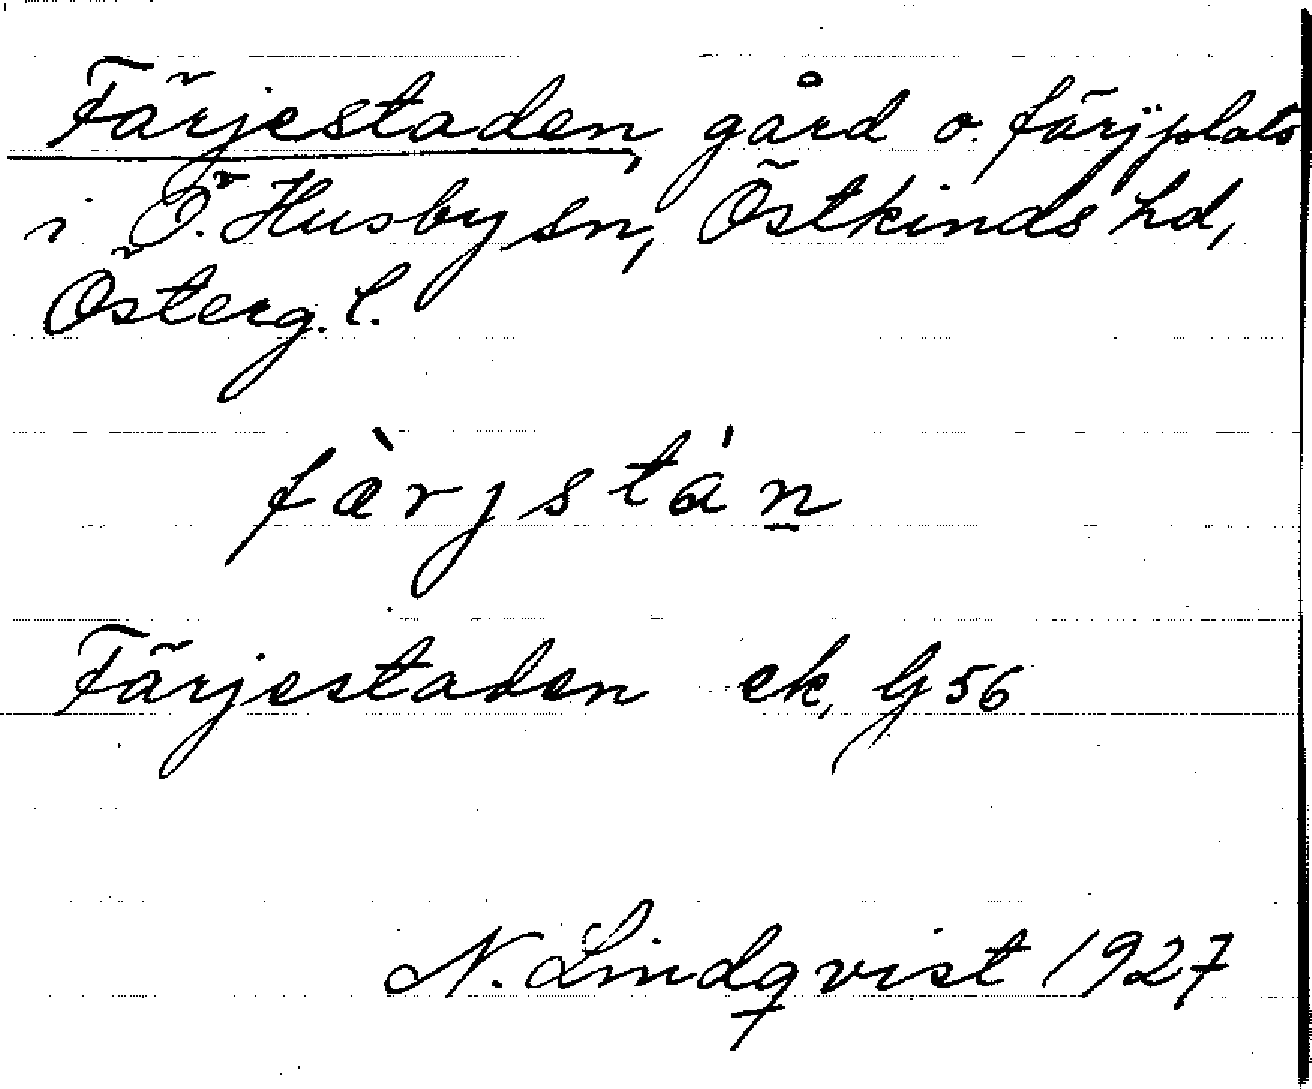 Färjestaden, gård o. färjplats
i Ö. Husby sn, Östkinds hd,
Österg. l.
fàrjstán
Färjestaden ek, G 56
N. Lindqvist 1927